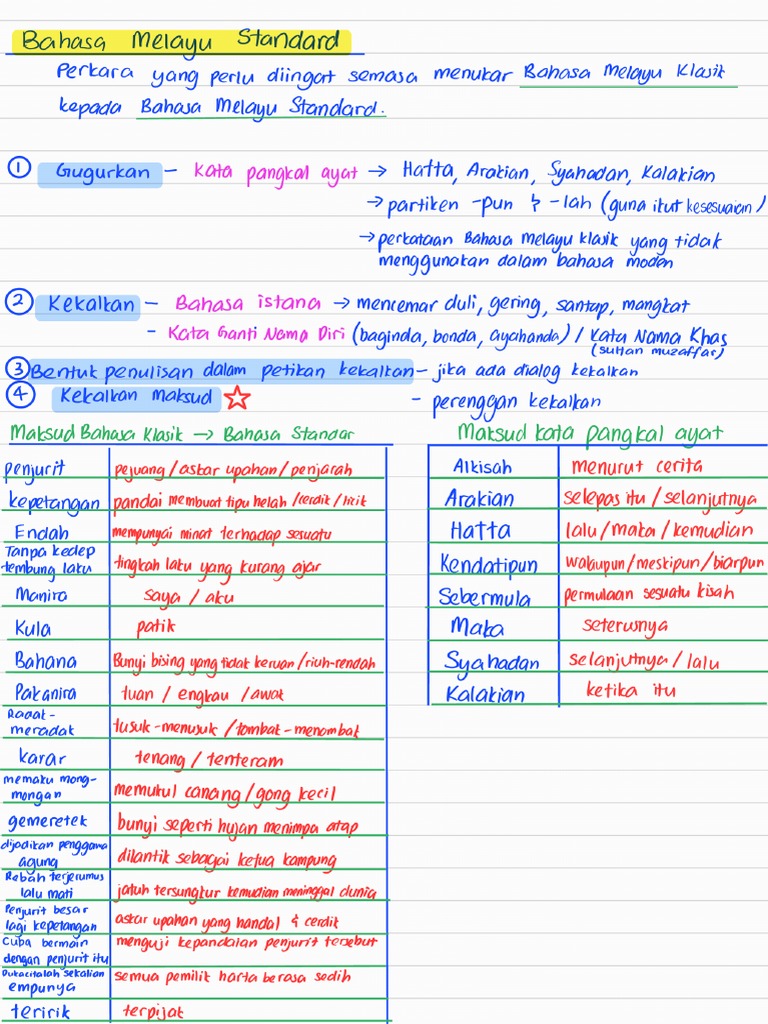 Bahasa Melayu Standard
Perkara yang perlu diingat semasa menukar Bahasa Melayu Klasik
kepada Bahasa Melayu Standard.
① Gugurkan – Kata pangkal ayat → Hatta, Arakian, Syahadan, Kalakian
→ partiken -pun & -lah (guna ikut kesesuaian)
→ perkataan Bahasa Melayu klasik yang tidak
menggunakan dalam bahasa moden
② Kekalkan – Bahasa istana → mencemar duli, gering, santap, mangkat
- Kata Ganti Nama Diri (baginda, bonda, ayahanda) / Kata Nama Khas
(sultan muzaffar)
③ Bentuk penulisan dalam petikan kekalkan – jika ada dialog kekalkan
④ Kekalkan maksud ☆ - perenggan kekalkan
Maksud Bahasa Klasik → Bahasa Standar
penjurit pejuang / askar upahan / penjarah
kepetangan pandai membuat tipu helah / cerdik / licik
Endah mempunyai minat terhadap sesuatu
Tanpa kedep
tembung laku tingkah laku yang kurang ajar
Manira saya / aku
Kula patik
Bahana Bunyi bising yang tidak keruan / riuh-rendah
Pakanira tuan / engkau / awak
Radak-
meradak tusuk-menusuk / tombak-menombak
karar tenang / tenteram
memaku mong-
mongan memukul canang / gong kecil
gemeretek bunyi seperti hujan menimpa atap
dijadikan penggawa
agung dilantik sebagai ketua kampung
Rebah terjerumus
lalu mati jatuh tersungkur kemudian meninggal dunia
Penjurit besar
lagi kepetangan askar upahan yang handal & cerdik
Cuba bermain
dengan penjurit itu menguji kepandaian penjurit tersebut
Dukacitalah sekalian
empunya semua pemilik harta berasa sedih
teririk terpijak
Maksud kata pangkal ayat
Alkisah menurut cerita
Arakian selepas itu / selanjutnya
Hatta lalu / maka / kemudian
Kendatipun walaupun / meskipun / biarpun
Sebermula permulaan sesuatu kisah
Maka seterusnya
Syahadan selanjutnya / lalu
Kalakian ketika itu